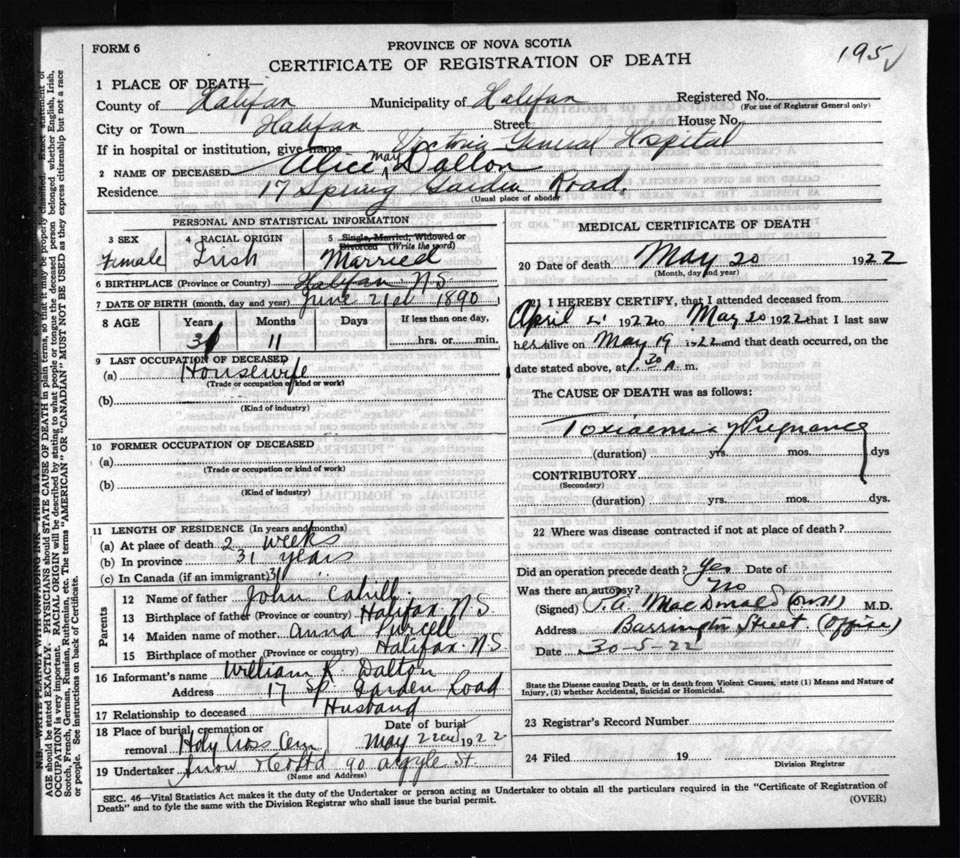 FORM 6
PROVINCE OF NOVA SCOTIA
CERTIFICATE OF REGISTRATION OF DEATH
195
1 PLACE OF DEATH
County of Halifax Municipality of Halifax Registered No.
(For use of Registrar General only)
City or Town Halifax Street House No.
If in hospital or institution, give name Victoria General Hospital
2 NAME OF DECEASED Alice May Dalton
Residence 17 Spring Garden Road.
(Usual place of abode)
PERSONAL AND STATISTICAL INFORMATION
3 SEX 4 RACIAL ORIGIN 5 Single, Married, Widowed or Divorced (Write the word)
Female Irish Married
6 BIRTHPLACE (Province or Country) Halifax N.S.
7 DATE OF BIRTH (month, day and year) June 21st 1890
8 AGE Years Months Days If less than one day,
31 11 hrs. or min.
9 LAST OCCUPATION OF DECEASED
(a) Housewife
(Trade or occupation of kind or work)
(b)
(Kind of industry)
10 FORMER OCCUPATION OF DECEASED
(a)
(Trade or occupation or kind of work)
(b)
(Kind of industry)
11 LENGTH OF RESIDENCE (In years and months)
(a) At place of death 2 weeks
(b) In province 31 years
(c) In Canada (if an immigrant) 31
Parents
12 Name of father John Cahill
13 Birthplace of father (Province or country) Halifax N.S.
14 Maiden name of mother Anna Purcell
15 Birthplace of mother (Province or country) Halifax N.S.
16 Informant's name William R. Dalton
Address 17 Sp. Garden Road
17 Relationship to deceased Husband
18 Place of burial, cremation or removal Holy Cross Cem Date of burial May 22nd 1922
19 Undertaker Snow &Co Ltd 90 Argyle St.
(Name and Address)
MEDICAL CERTIFICATE OF DEATH
20 Date of death May 20 1922
(Month, day and year)
21 I HEREBY CERTIFY, that I attended deceased from
April 1922 to May 20 1922 that I last saw
her alive on May 19 1922 and that death occurred, on the
date stated above, at 1.30 A. m.
The CAUSE OF DEATH was as follows:
Toxiaemia Pregnancy
(duration) yrs. mos. dys
CONTRIBUTORY
(Secondary)
(duration) yrs. mos. dys.
22 Where was disease contracted if not at place of death?
Did an operation precede death? Yes Date of
Was there an autopsy? No
(Signed) P.A. MacDonald M.D.
Address Barrington Street. (Office)
Date 30-5-22
State the Disease causing Death, or in death from Violent Causes, state (1) Means and Nature of
Injury, (2) whether Accidental, Suicidal or Homicidal.
23 Registrar's Record Number
24 Filed 19
Division Registrar
SEC. 46—Vital Statistics Act makes it the duty of the Undertaker or person acting as Undertaker to obtain all the particulars required in the "Certificate of Registration of
Death" and to fyle the same with the Division Registrar who shall issue the burial permit.
(OVER)
N.B. WRITE PLAINLY WITH UNFADING INK—THIS IS A PERMANENT RECORD.
AGE should be stated EXACTLY. PHYSICIANS should STATE CAUSE OF DEATH in plain terms, so that it may be properly classified. Exact statement of
OCCUPATION is very important. RACIAL ORIGIN will be described by stating to what people or tongue the deceased person belonged whether English, Irish,
Scotch, French, German, Russian, Ruthenian, etc. The terms "AMERICAN" OR "CANADIAN" MUST NOT BE USED as they express citizenship but not a race
or people. See instructions on back of Certificate.